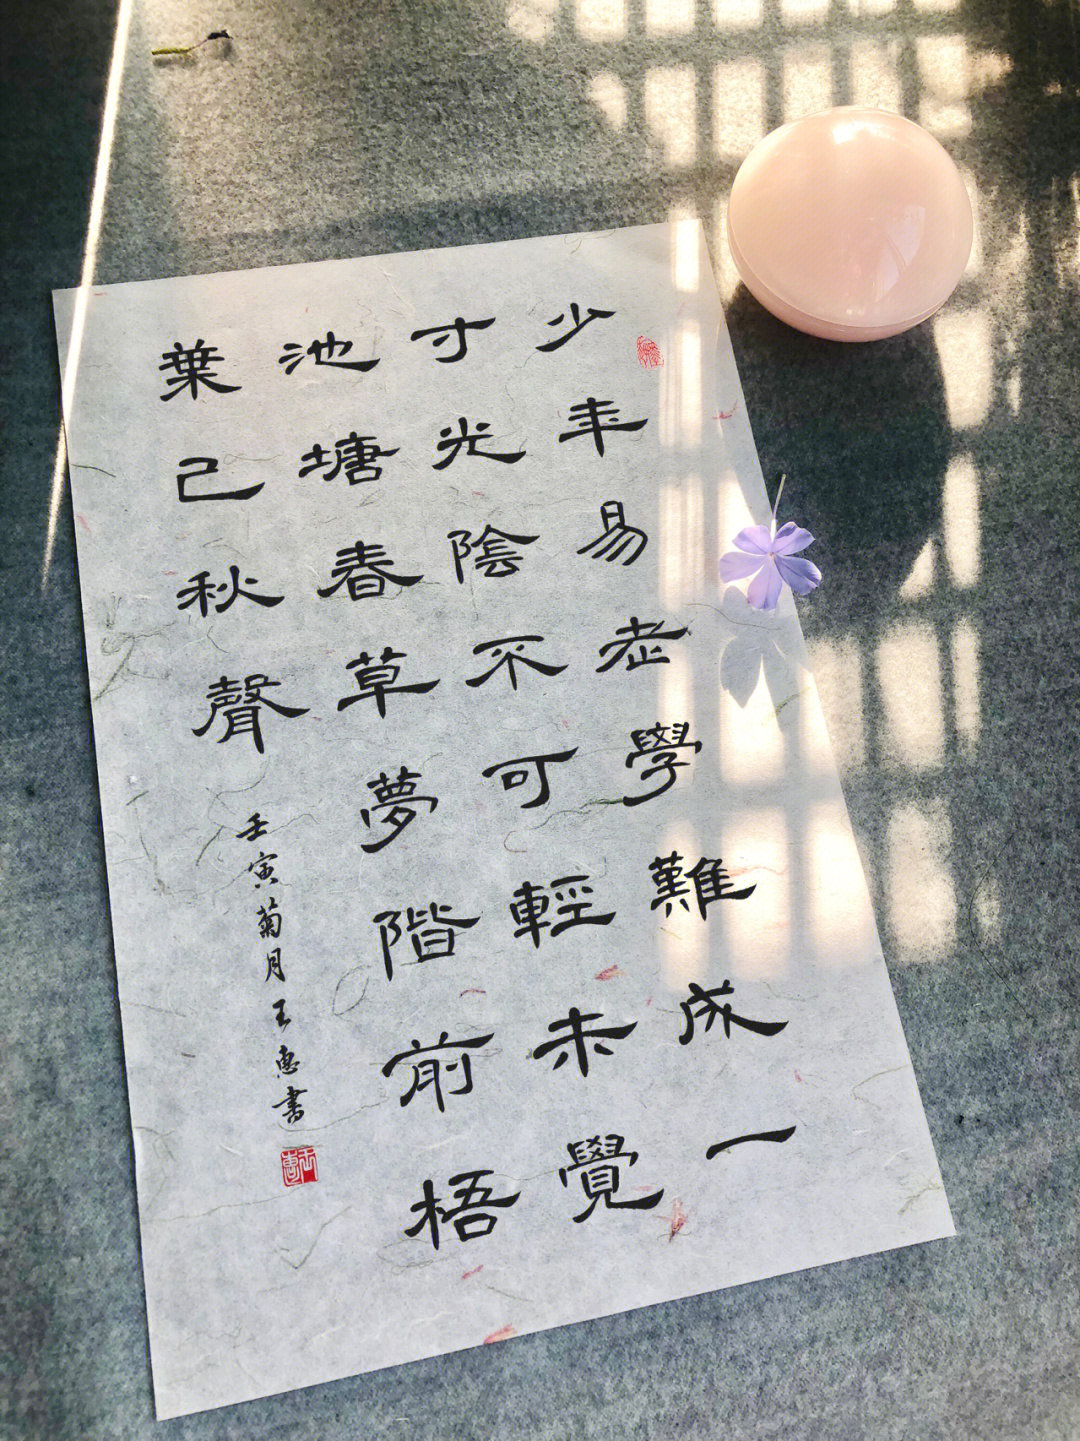 少年易老學難成一
寸光陰不可輕未覺
池塘春草夢階前梧
葉已秋聲
壬寅菊月王惠書